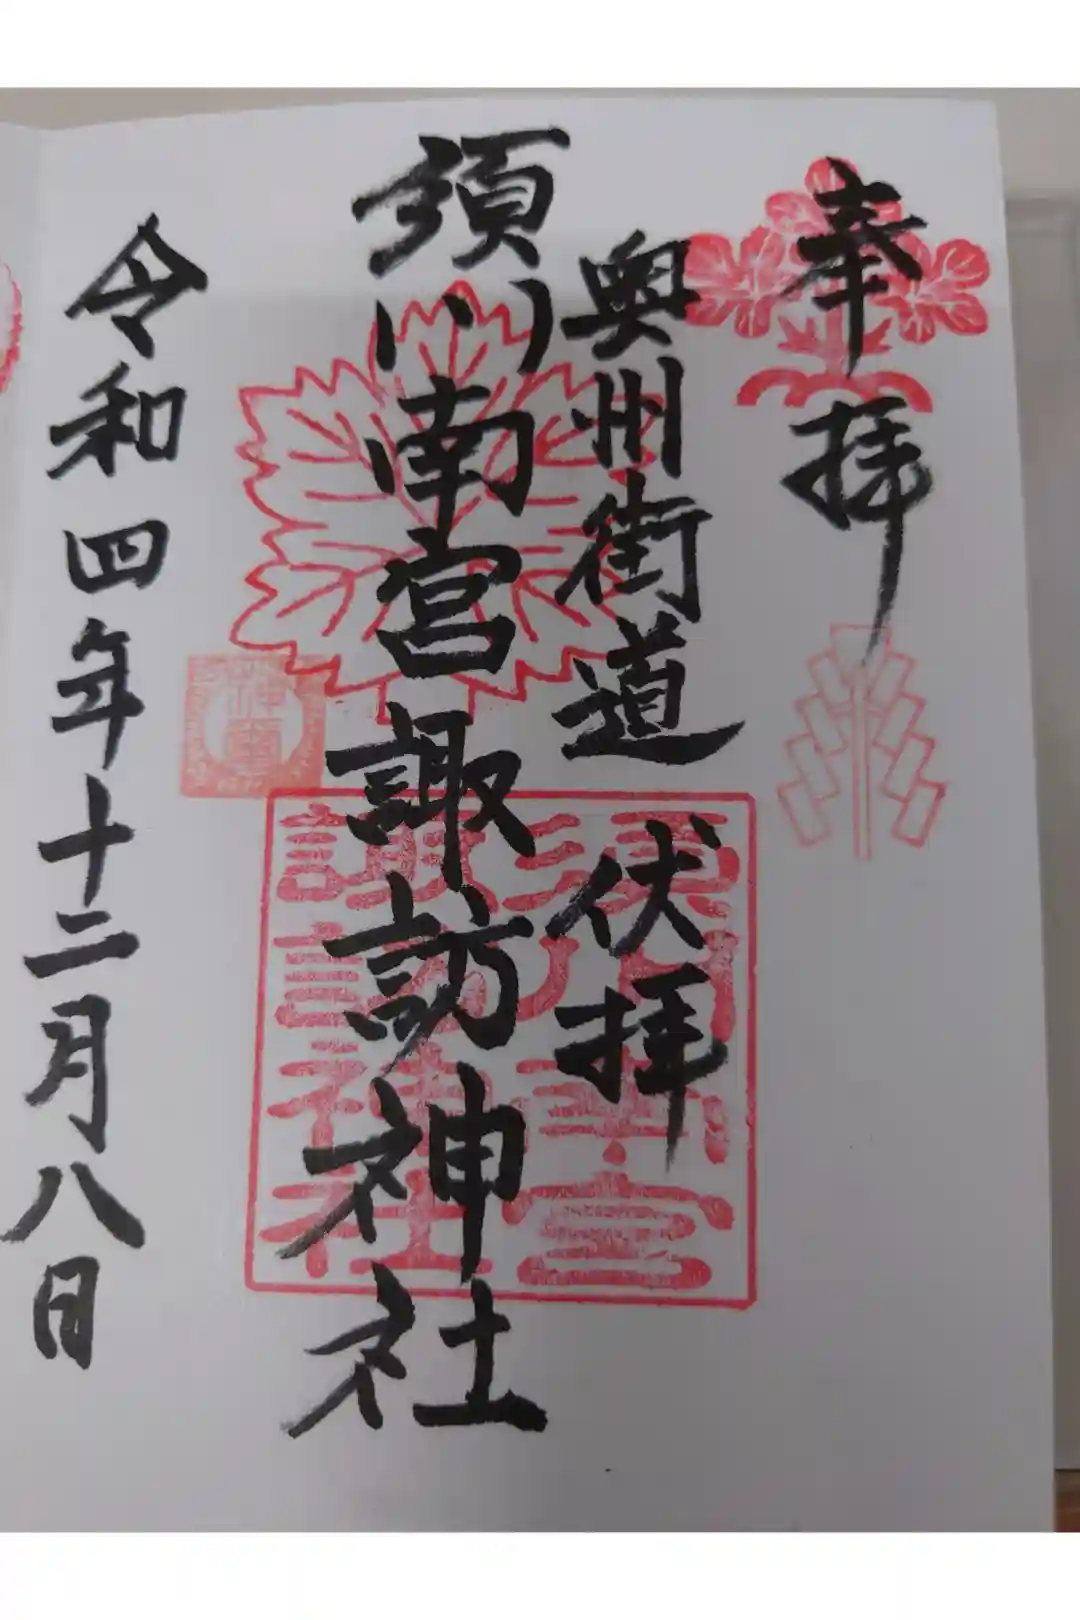 奉拝
奥州街道 伏拝
須川南宮諏訪神社
令和四年十二月八日
須川南宮
諏訪神社